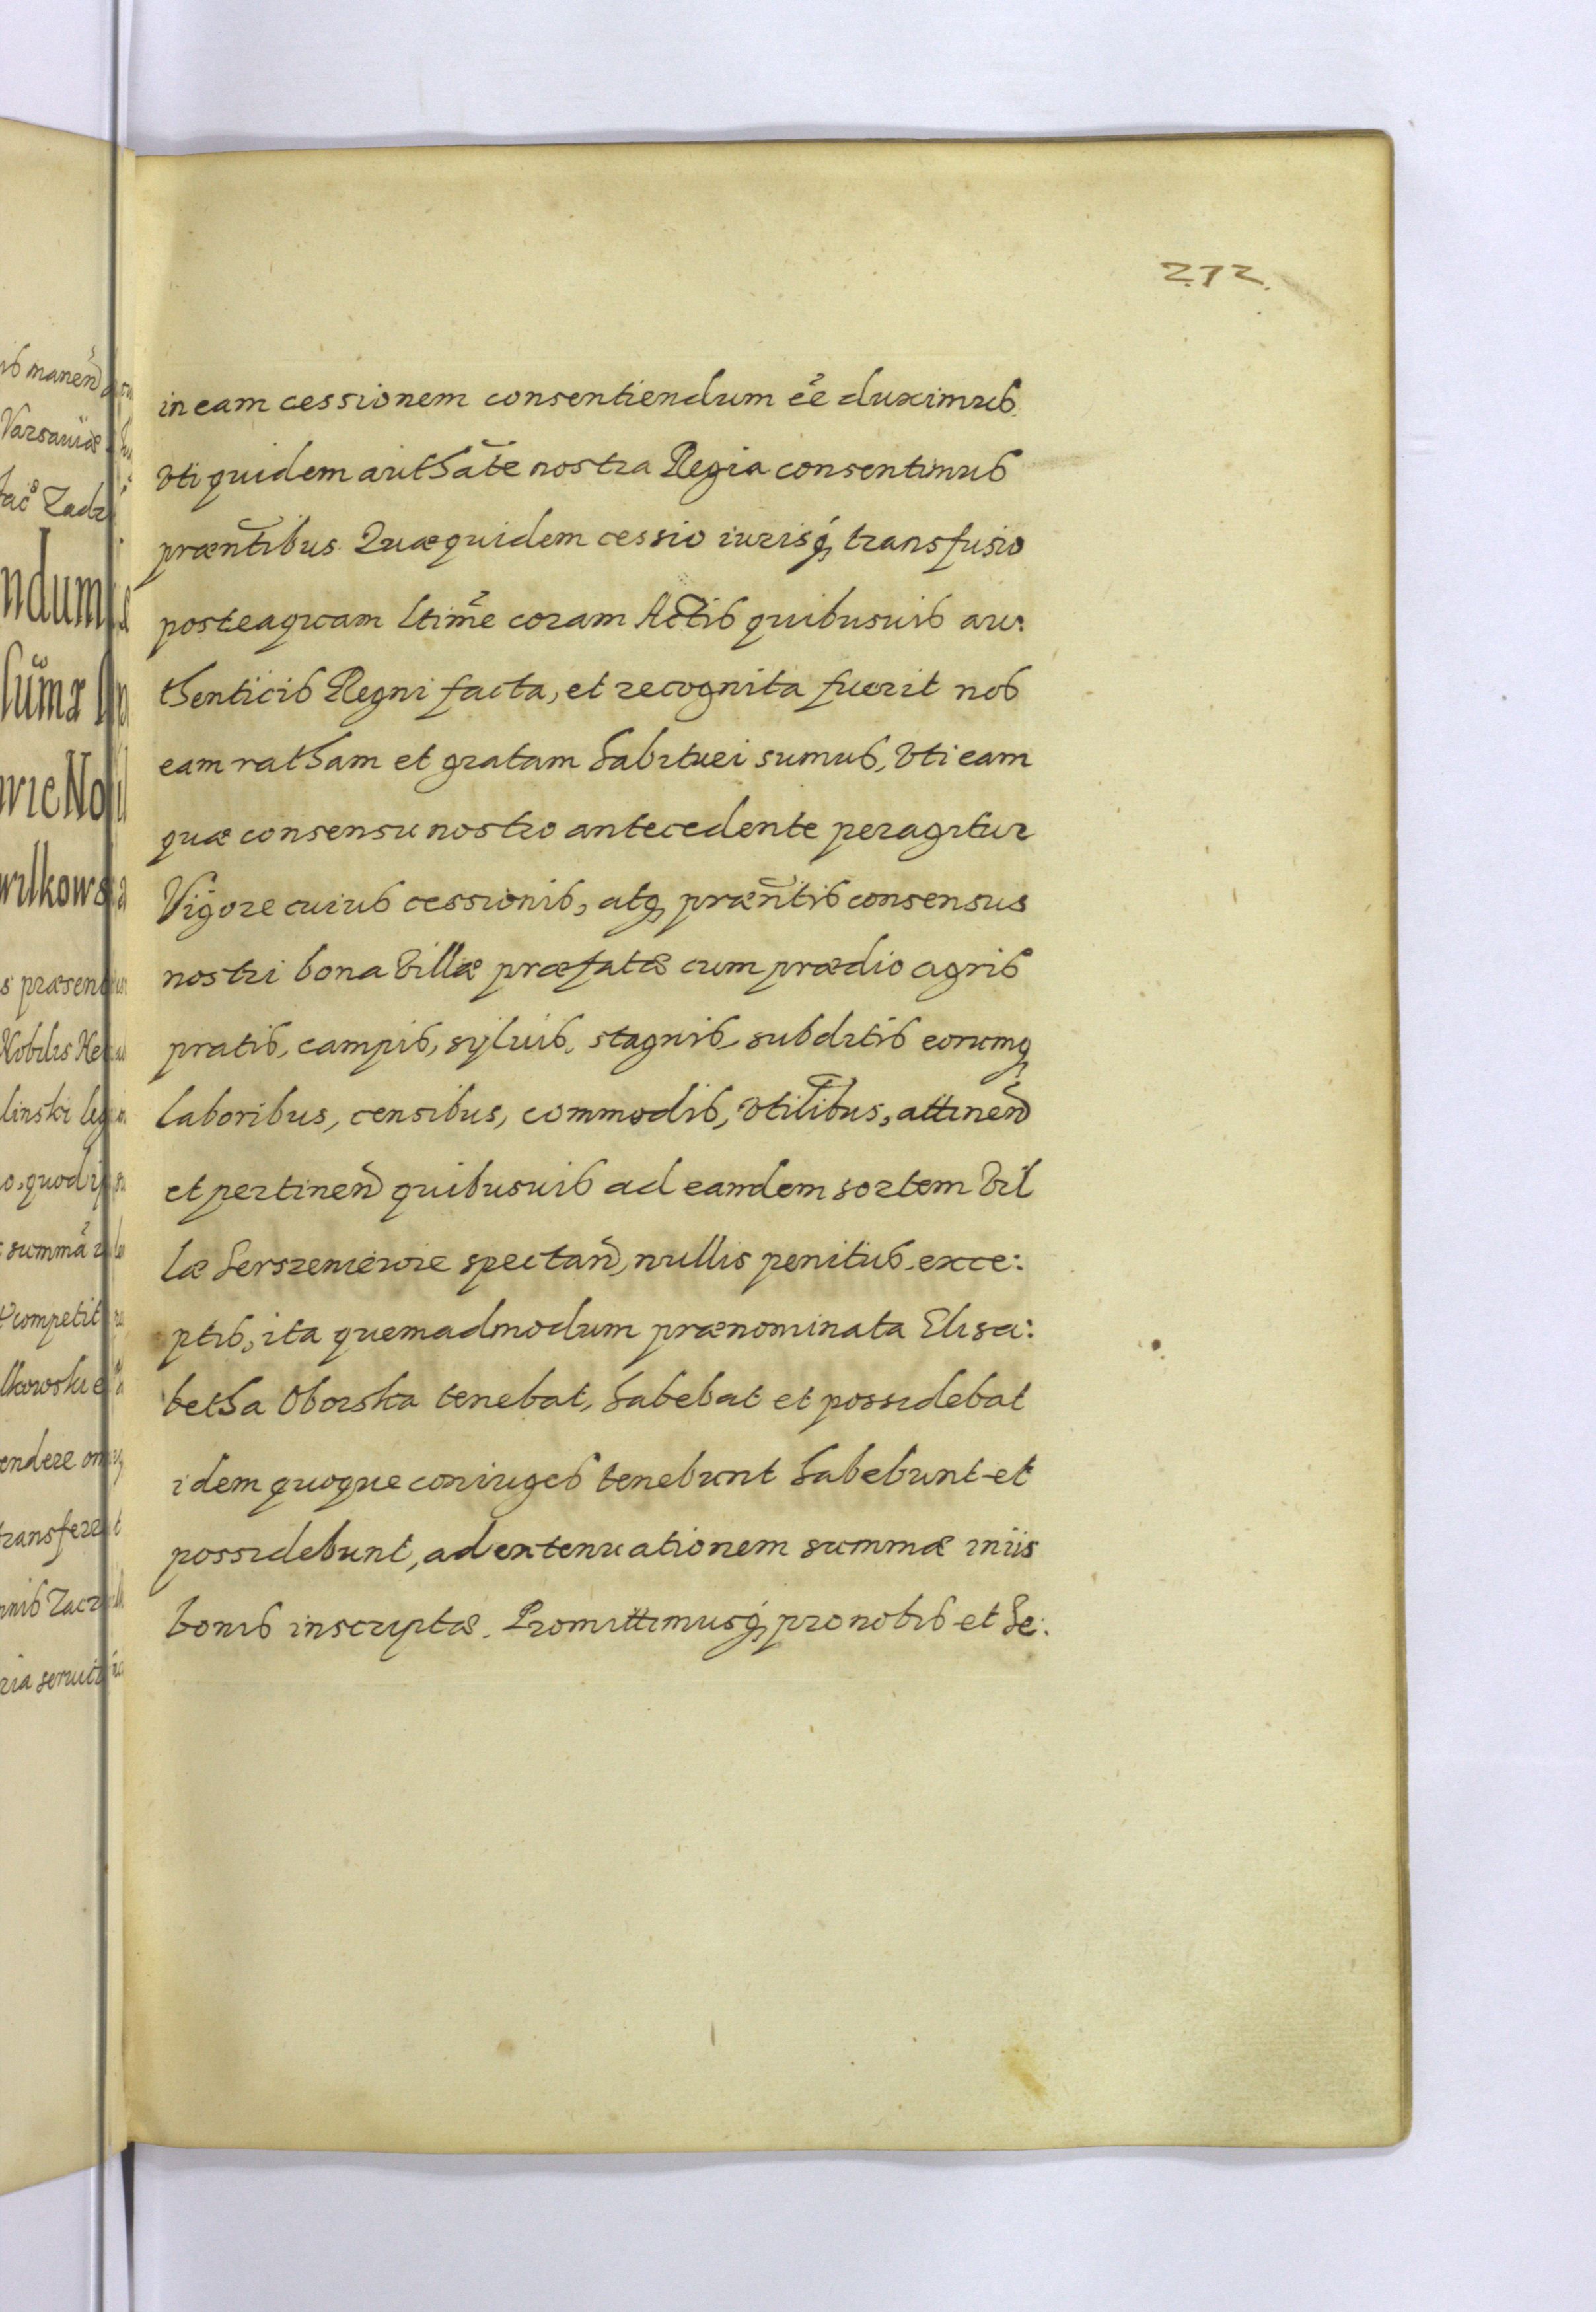 272.
in eam cessionem consentiendum ee͂ duximus.
Vti quidem autha͂te nostra Regia consentimus
præn͂tibus. Quæ quidem cessio iurisq, transfusio
posteaquam ltim͂e coram Actis quibusuis au:
thenticis Regni facta, et recognita fuerit nos
eam ratham et gratam habituri sumus, Vti eam
quæ consensu nostro antecedente peragitur
Vigore cuius cessionis, atq, præn͂tis consensus
nostri bona Villæ præfatæ cum prædio agris
pratis, campis, syluis, stagnis, subditis eorumq
laboribus, censibus, commodis, Vtilitbus, attinen͂
et pertinen͂ quibusuis ad eamdem sortem Vil
læ Serszeniewie spectan͂, nullis penitus exce:
ptis, ita quemadmodum prænominata Elisa:
betha Oborska tenebat, habebat et possidebat
idem quoque coniuges tenebunt habebunt et
possidebunt, ad extenuationem summæ in iis
bonis inscriptæ. Promittimusq, pro nobis et Se:
ib manen͂
Varsauiæ
Zadz
ndum
sum͂a
wilkows
s præsen
Nobilis He
linski leg
o, quod ip
summa͂
competit
lkowski e
endere om
transferet